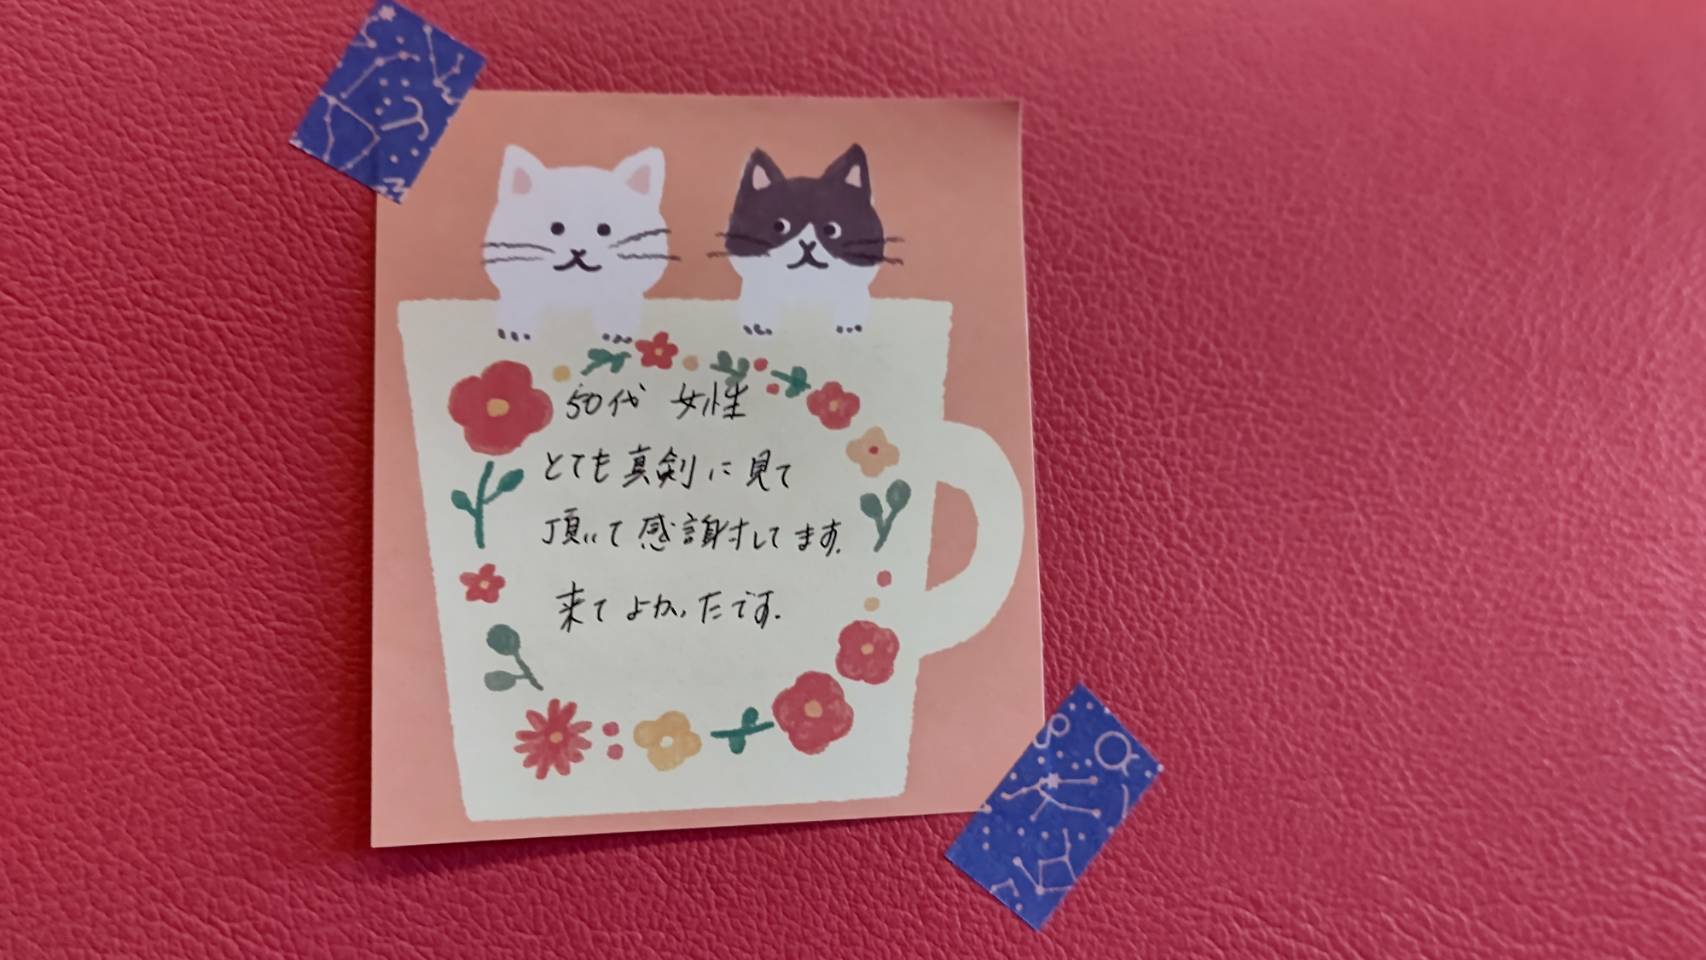 50代 女性
とても真剣に見て
頂いて感謝してます。
来てよかったです。